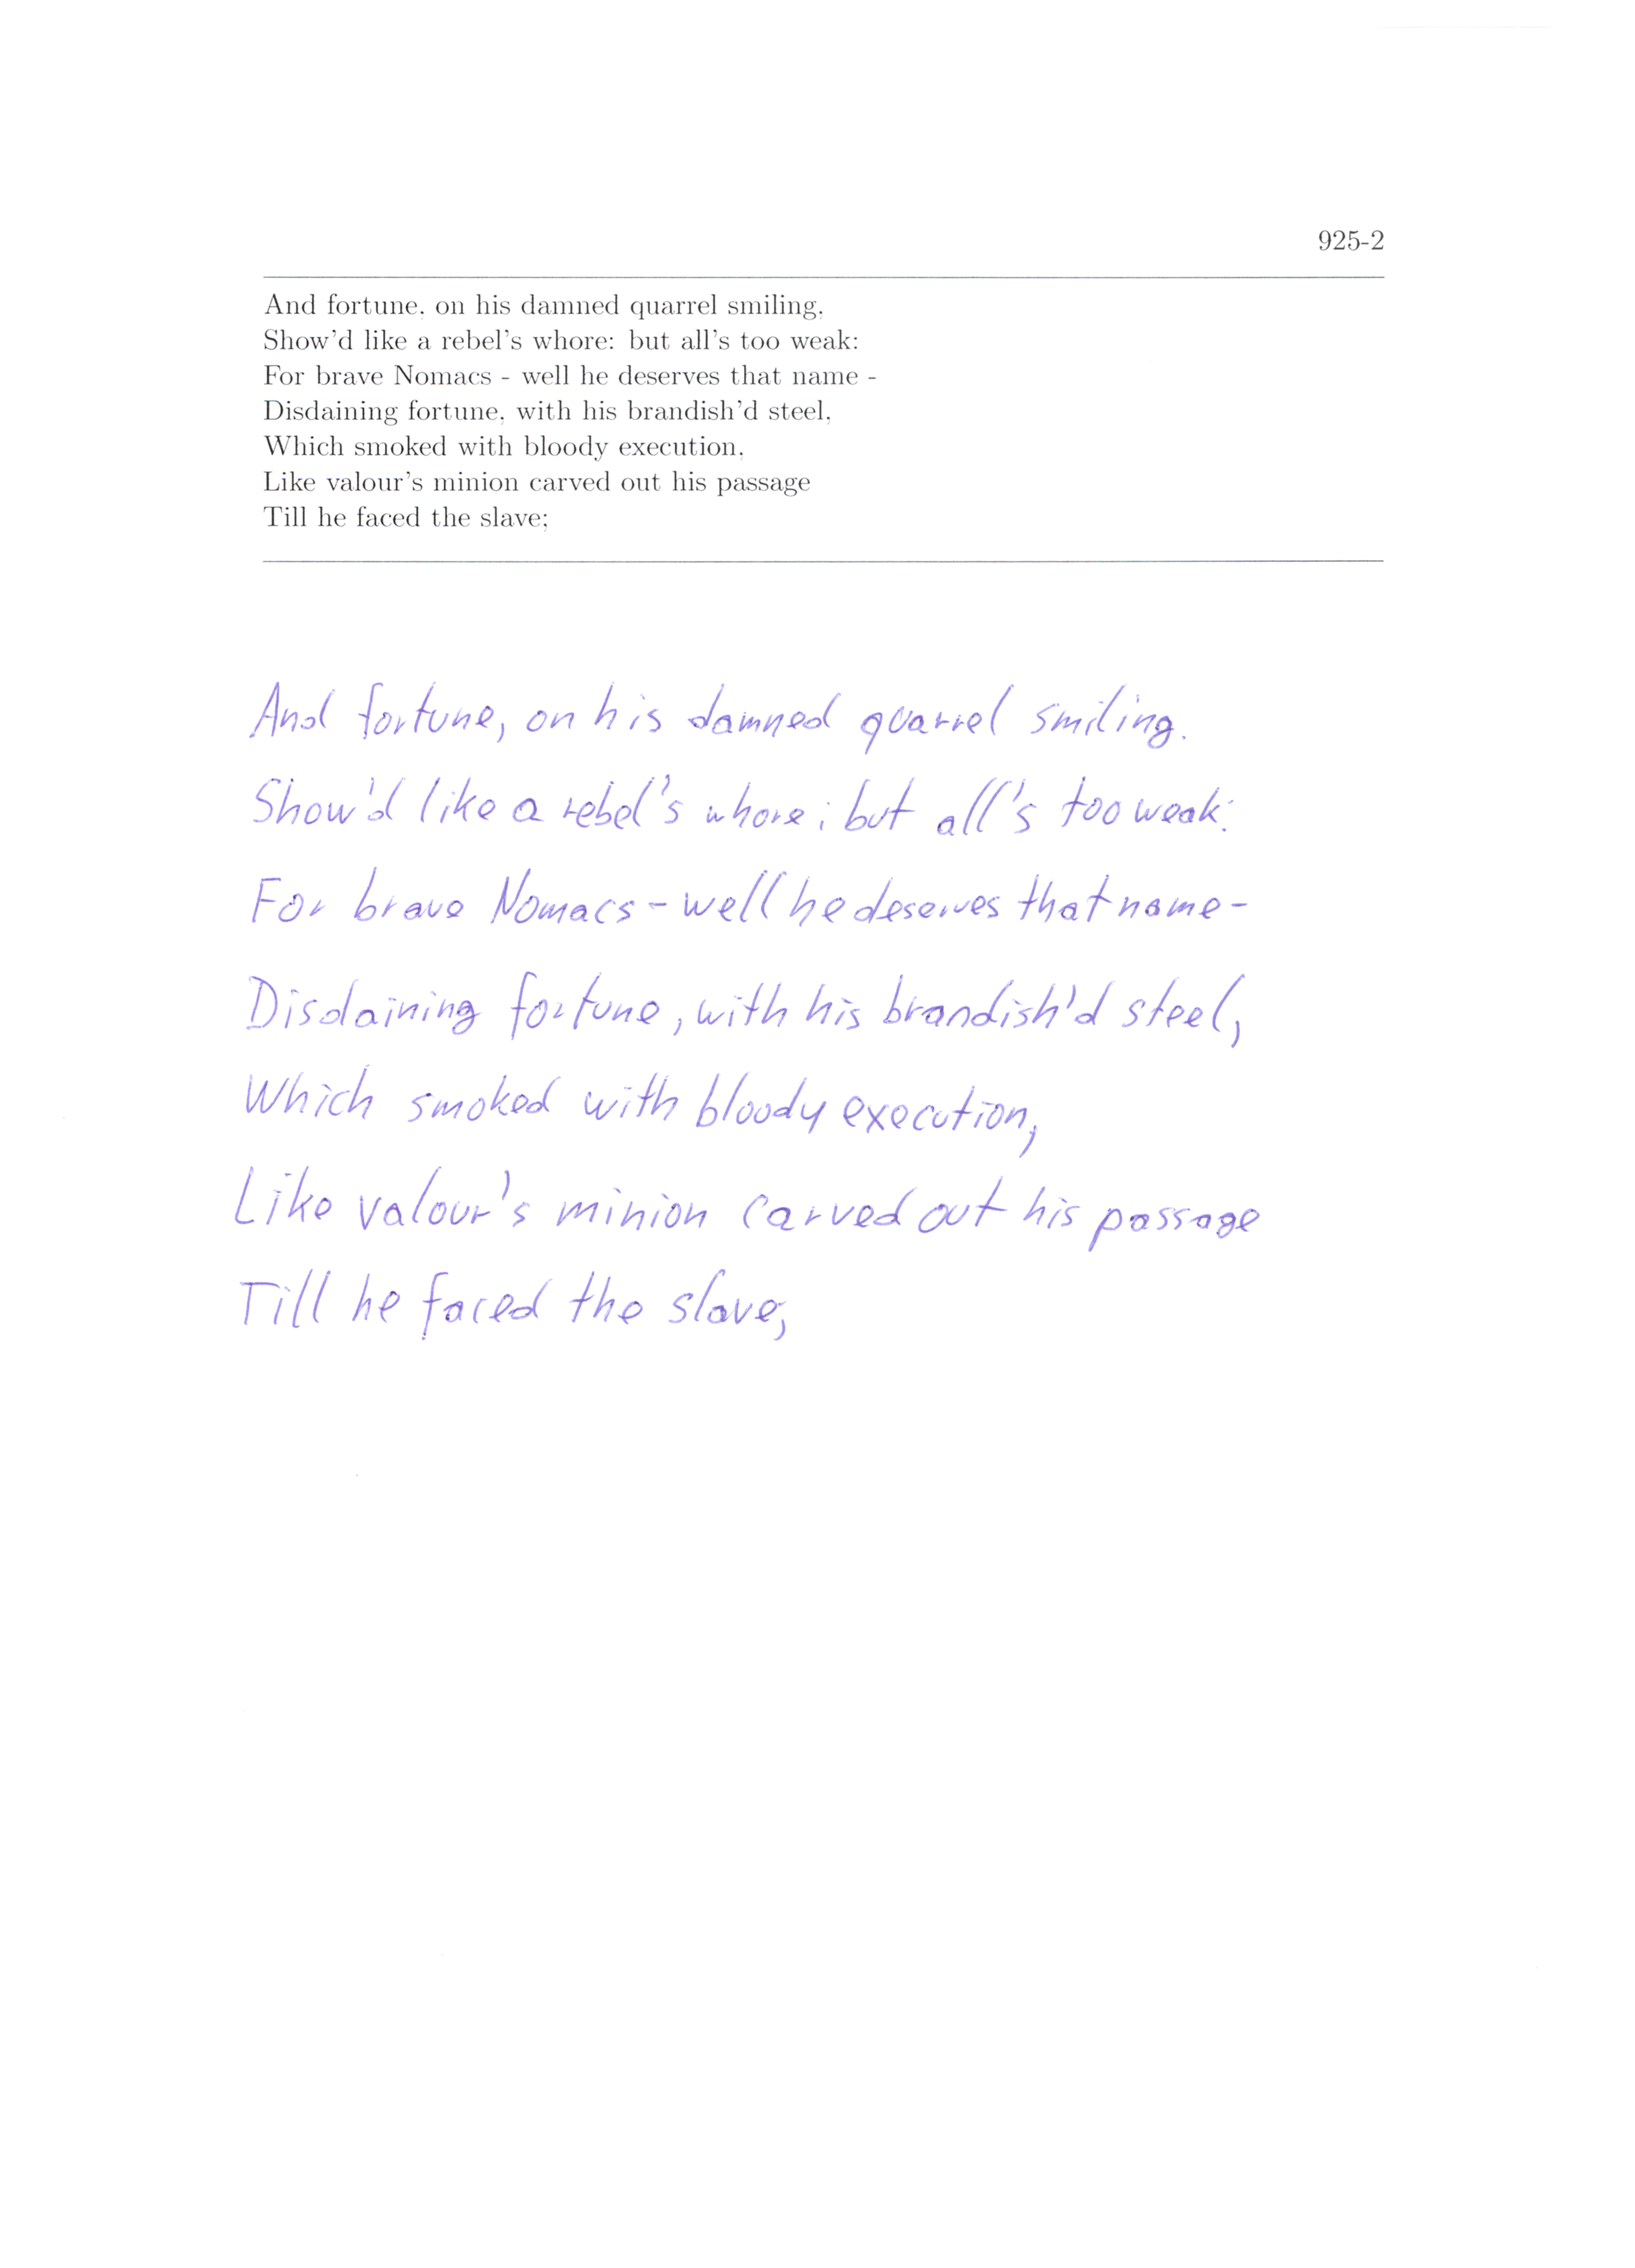 925-2
And fortune, on his damned quarrel smiling,
Show'd like a rebel's whore: but all's too weak:
For brave Nomacs - well he deserves that name -
Disdaining fortune, with his brandish'd steel,
Which smoked with bloody execution,
Like valour's minion carved out his passage
Till he faced the slave;
And fortune, on his damned quarrel smiling.
Show'd like a rebel's whore: but all's too weak:
For brave Nomacs - well he deserves that name -
Disdaining fortune, with his brandish'd steel,
Which smoked with bloody execution,
Like valour's minion carved out his passage
Till he faced the slave;